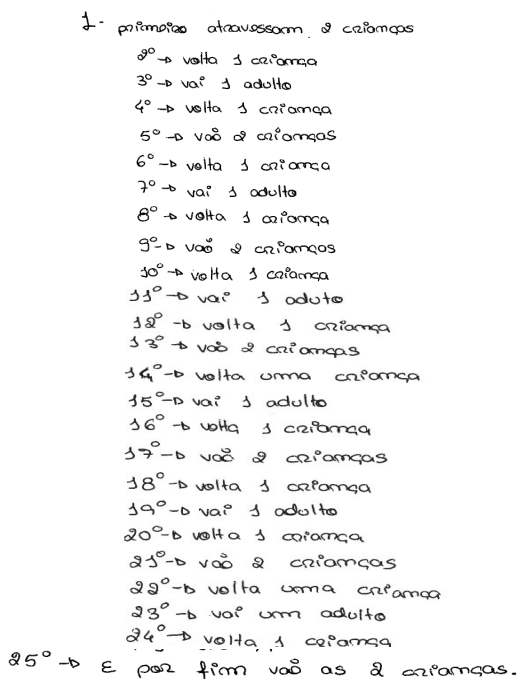 1- primeiro atravessam 2 crianças
2º → volta 1 criança
3º → vai 1 adulto
4º → volta 1 criança
5º → vaõ 2 crianças
6º → volta 1 criança
7º → vai 1 adulto
8º → volta 1 criança
9º → vaõ 2 crianços
10º → volta 1 criança
11º → vai 1 aduto
12º → volta 1 criança
13º → vaõ 2 crianças
14º → volta uma criança
15º → vai 1 adulto
16º → volta 1 criança
17º → vaõ 2 crianças
18º → volta 1 criança
19º → vai 1 adulto
20º → volta 1 criança
21º → vaõ 2 crianças
22º → volta uma criança
23º → vai um adulto
24º → volta 1 criança
25º → E por fim vaõ as 2 crianças.